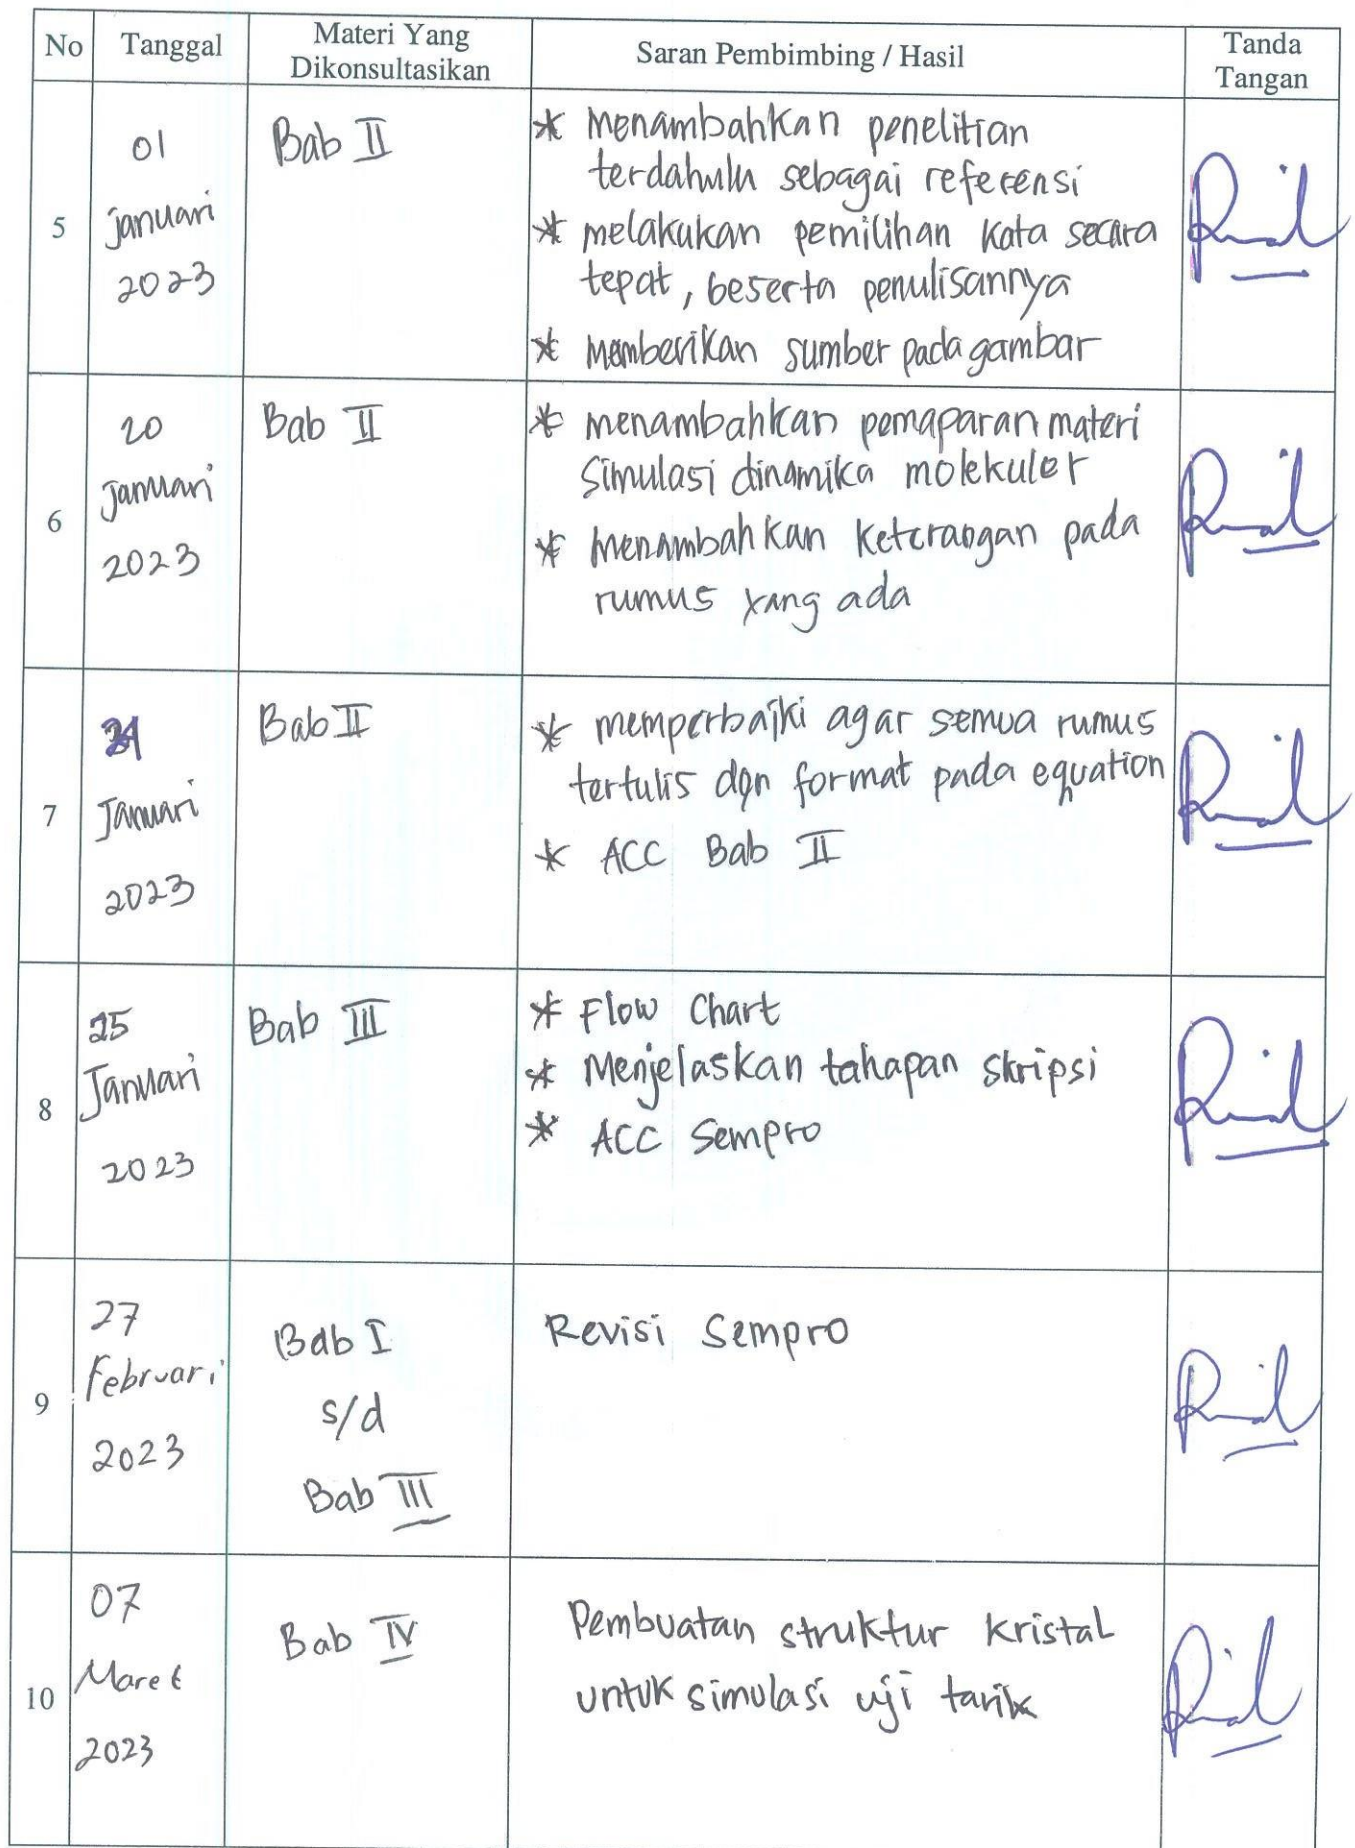 No Tanggal Materi Yang Dikonsultasikan Saran Pembimbing / Hasil Tanda Tangan
5
01
januari
2023
Bab II
* menambahkan penelitian
terdahulu sebagai referensi
* melakukan pemilihan kata secara
tepat, beserta penulisannya
* memberikan sumber pada gambar
6
20
Januari
2023
Bab II
* menambahkan pemaparan materi
simulasi dinamika molekuler
* menambahkan keterangan pada
rumus yang ada
7
Januari
2023
Bab II
* memperbaiki agar semua rumus
tertulis dgn format pada equation
* ACC Bab II
8
25
Januari
2023
Bab III
* Flow Chart
* Menjelaskan tahapan skripsi
* ACC Sempro
9
27
Februari
2023
Bab I
s/d
Bab III
Revisi Sempro
10
07
Maret
2023
Bab IV
Pembuatan struktur kristal
untuk simulasi uji tarik